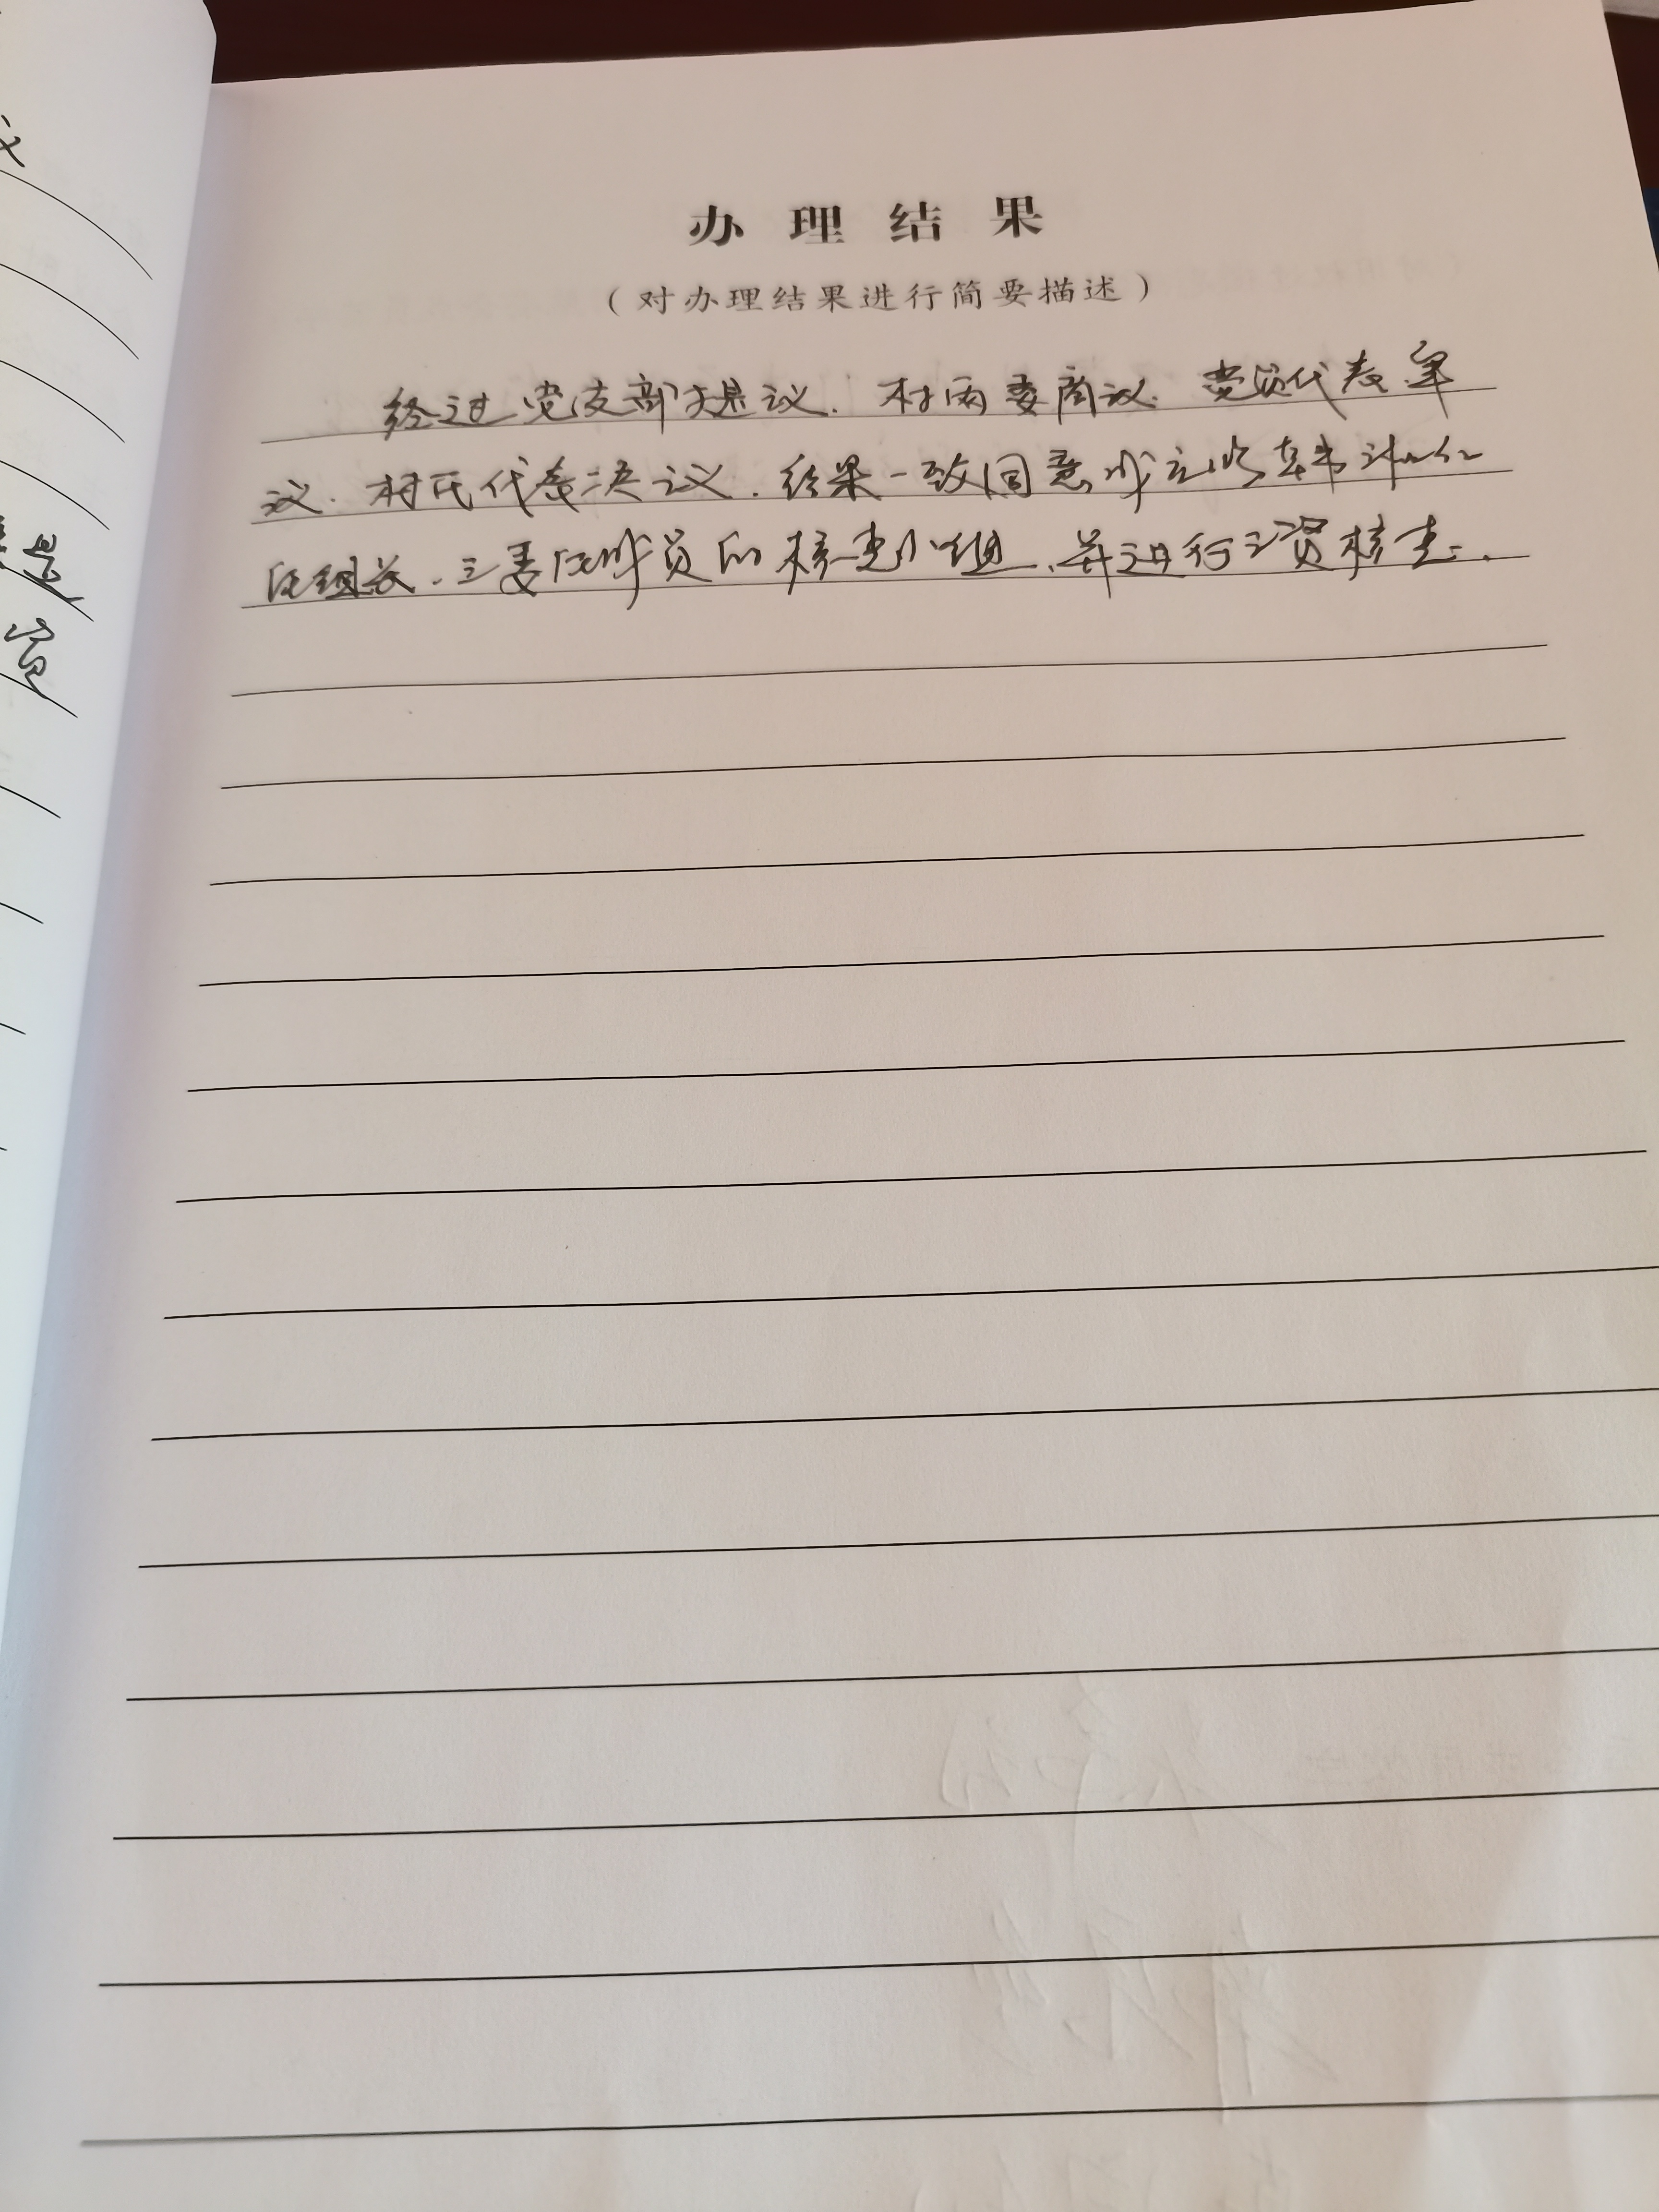 办理结果
（对办理结果进行简要描述）
经过党支部提议、村两委商议、党员代表审
议、村民代表决议，结果一致同意成立以
组长、三委成员的核查小组，并进行工资核查。